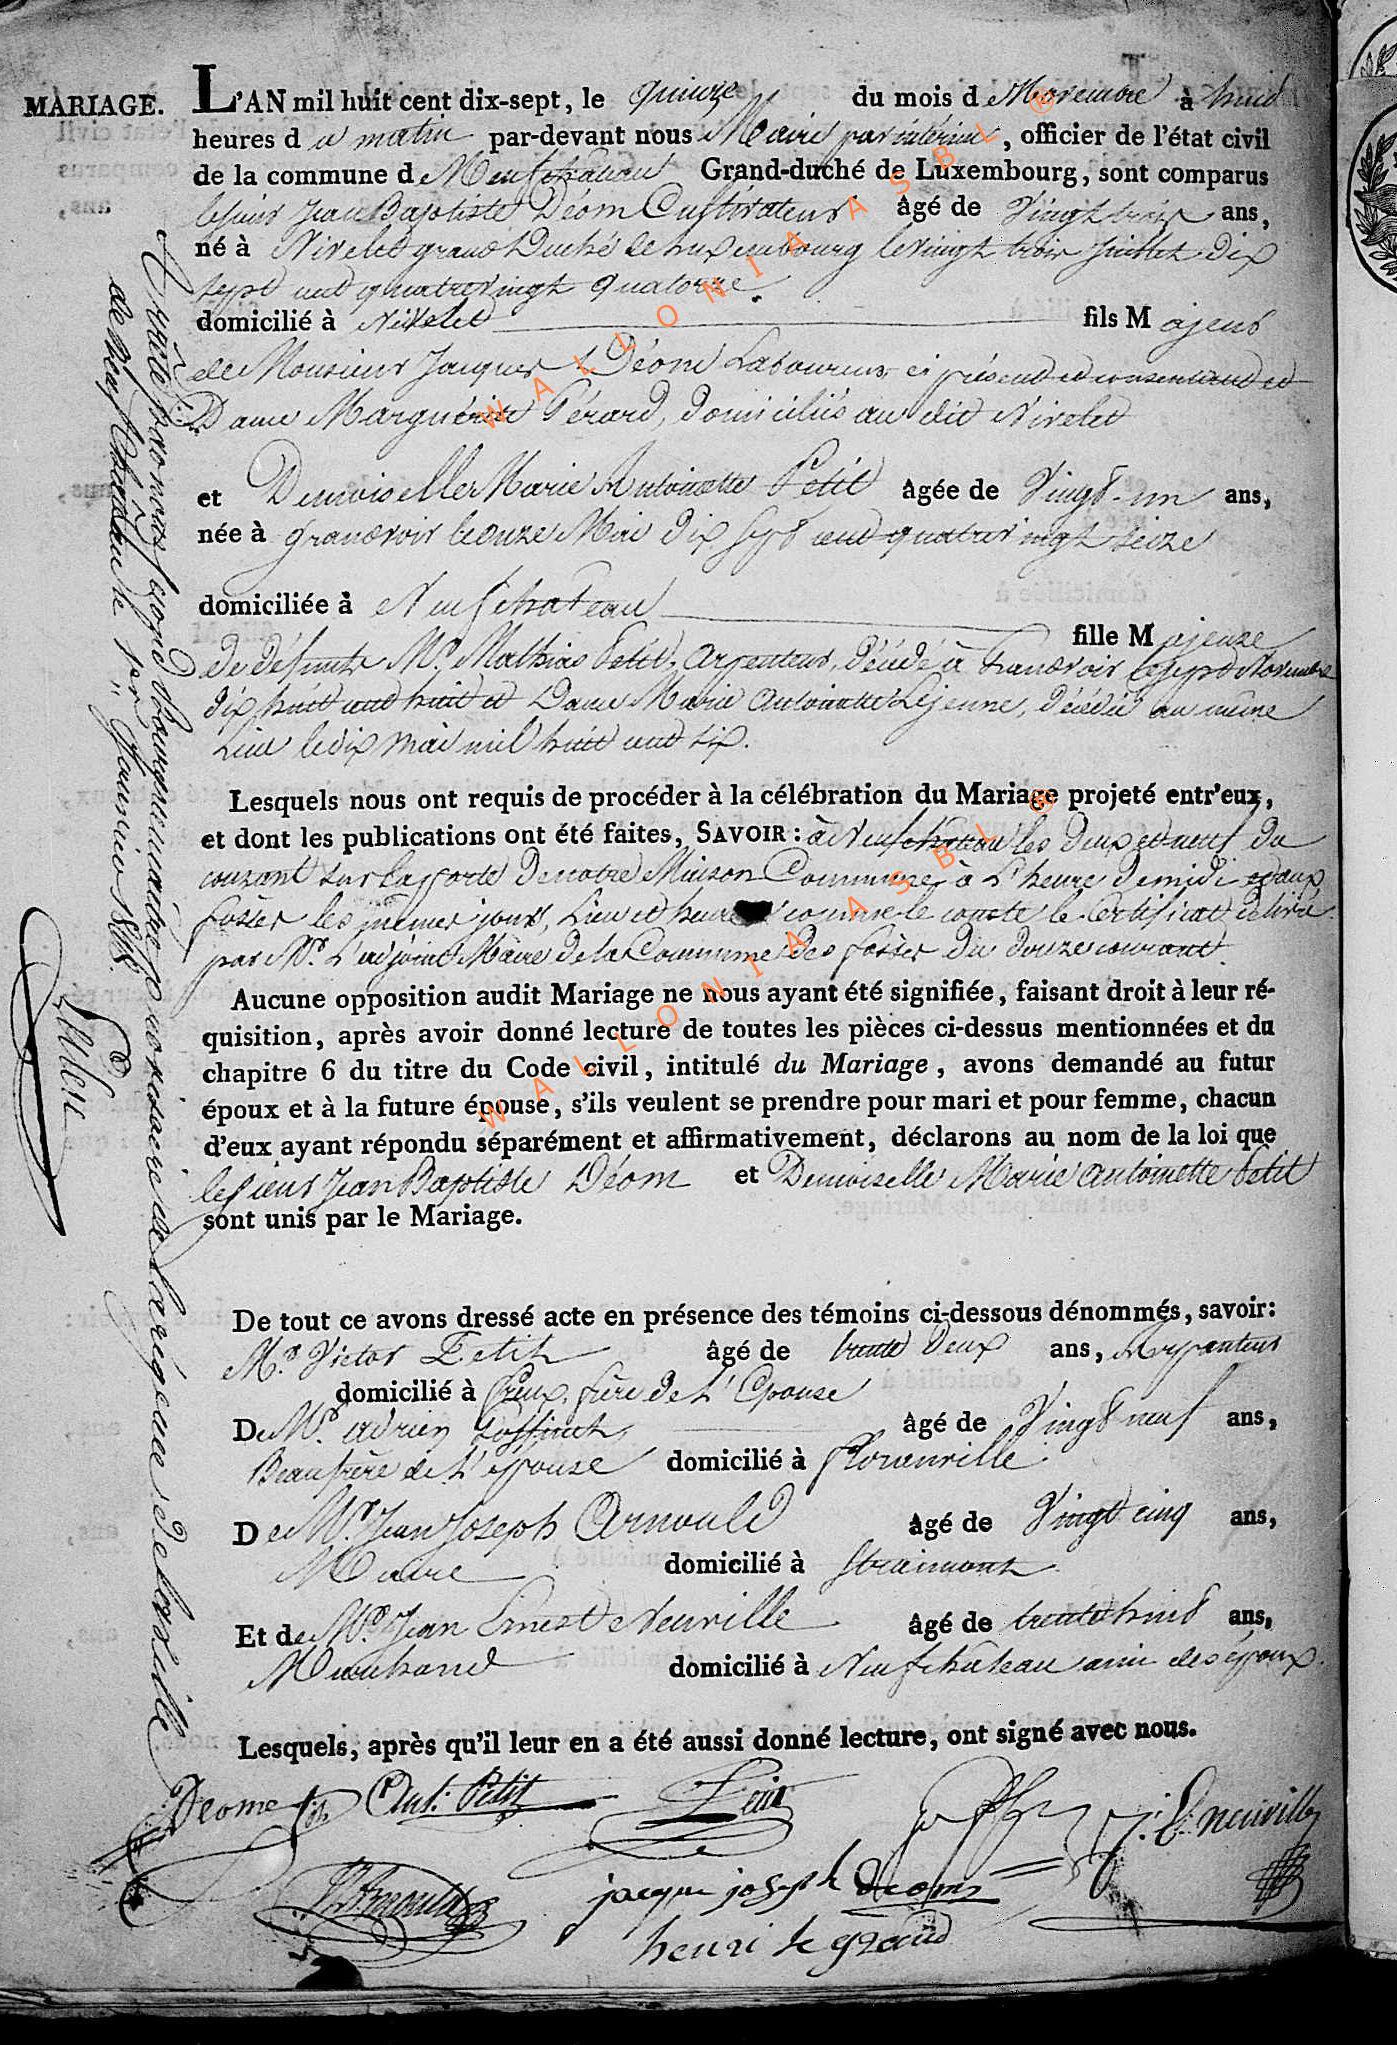 MARIAGE.
L'AN mil huit cent dix-sept, le quinze du mois d e Novembre à huit
heures d u matin par-devant nous Maire par intérim, officier de l'état civil
de la commune d e Neufchateau Grand-duché de Luxembourg, sont comparus
le sieur Jean Baptiste Déom Cultivateur âgé de Vingt trois ans,
né à Nivelet grand Duché de Luxembourg le vingt trois Juillet dix
sept cent quatre vingt quatorze
domicilié à Nivelet fils M ajeur
de Monsieur Jacques Déom Laboureur ci présent et consentant et
Dame Marguérite Gérard, domiciliés au dit Nivelet
et Demoiselle Marie Antoinette Petit âgée de Vingt-un ans,
née à Grandvoir le onze Mai dix sept cent quatre vingt seize
domiciliée à Neufchateau
fille M ajeure
de défunts Mr. Mathias Petit, Arpenteur, décédé à Grandvoir le sept Novembre
dix huit cent huit et Dame Marie Antoinette Lejeune, décédée au même
Lieu le dix Mai mil huit cent six.
Lesquels nous ont requis de procéder à la célébration du Mariage projeté entr'eux,
et dont les publications ont été faites, SAVOIR : à Neufchateau les deux et neuf du
courant sur la porte de notre Maison Commune, à L'heure de midi et aux
fosses les mêmes jours, Lieu et heure comme le conste le Certificat délivré
par Mr. L'adjoint Maire de la Commune des fosses du douze courant.
Aucune opposition audit Mariage ne nous ayant été signifiée, faisant droit à leur ré-
quisition, après avoir donné lecture de toutes les pièces ci-dessus mentionnées et du
chapitre 6 du titre du Code civil, intitulé du Mariage, avons demandé au futur
époux et à la future épouse, s'ils veulent se prendre pour mari et pour femme, chacun
d'eux ayant répondu séparément et affirmativement, déclarons au nom de la loi que
le sieur Jean Baptiste Déom et Demoiselle Marie Antoinette Petit
sont unis par le Mariage.
De tout ce avons dressé acte en présence des témoins ci-dessous dénommés, savoir:
Mr. Victor Petit âgé de trente deux ans, Arpenteur
domicilié à freux, frère de L'Epouse
De Mr. Adrien âgé de Vingt neuf ans,
Beaufrère de L'épouse domicilié à florenville
De Mr. Jean Joseph Arnould âgé de Vingt cinq ans,
Maire domicilié à Straimont
Et de Mr. Jean Ernest Neuville âgé de trente huit ans,
Marchand domicilié à Neufchateau ami des époux.
Lesquels, après qu'il leur en a été aussi donné lecture, ont signé avec nous.
Deome Ant: Petit Petit J: E: neuville
Arnould jacque joseph deom
henri le grand
de Neufchateau le 1er Janvier 1818.
WALLONIA ASBL ®
WALLONIA ASBL ®